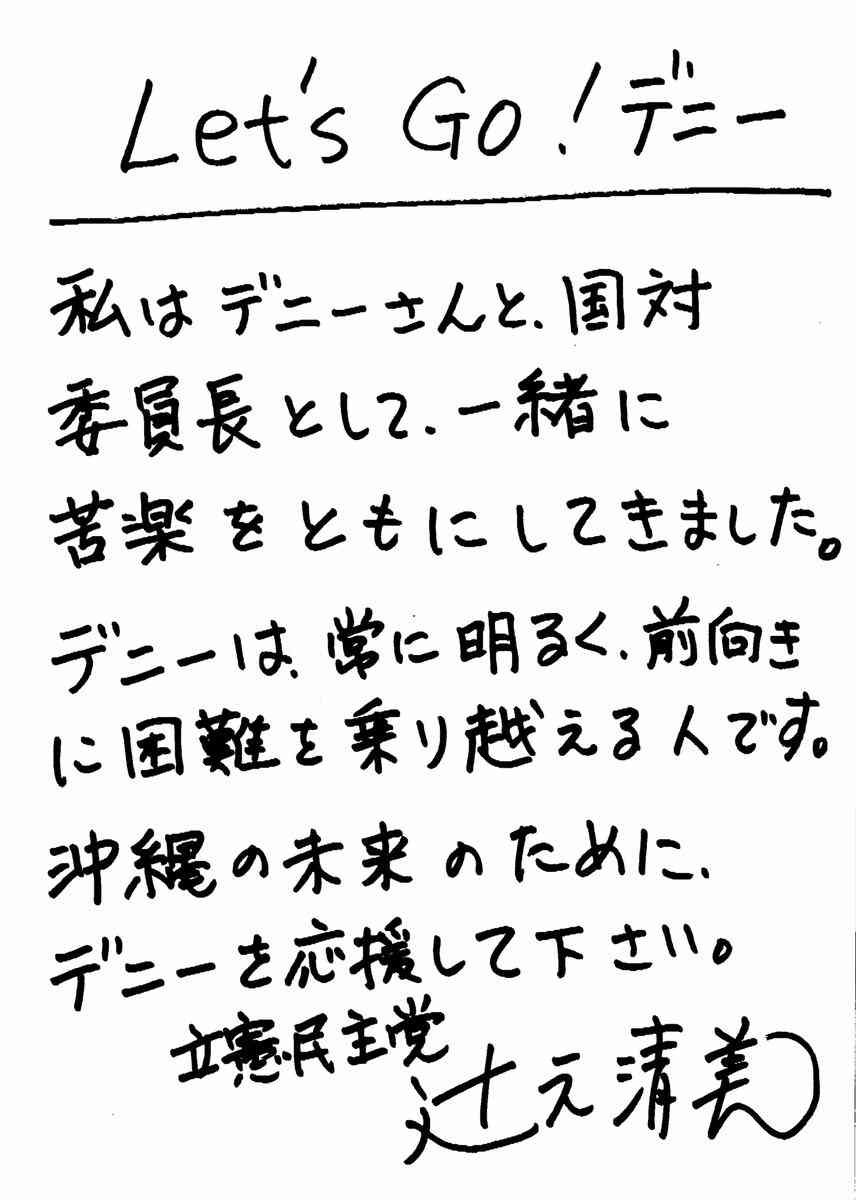 Let's Go! デニー
私はデニーさんと、国対
委員長として、一緒に
苦楽をともにしてきました。
デニーは、常に明るく、前向き
に困難を乗り越える人です。
沖縄の未来のために、
デニーを応援して下さい。
立憲民主党
辻元清美